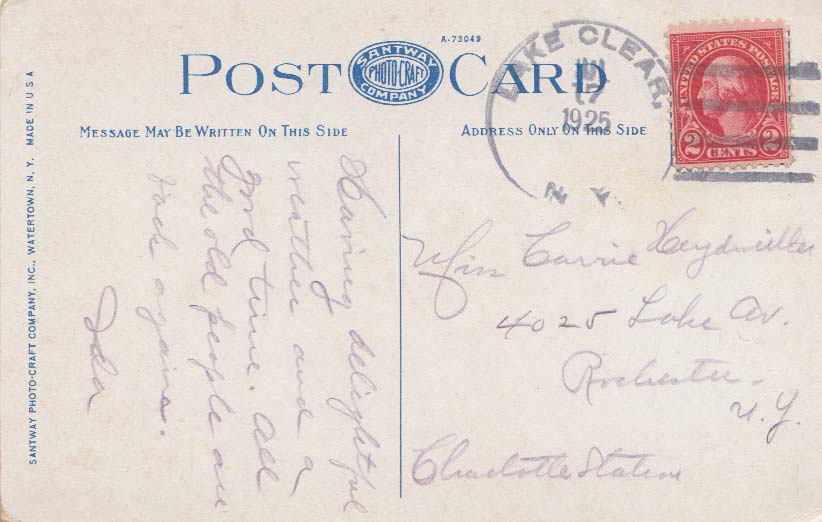 A-73049
POST CARD
SANTWAY
PHOTO-CRAFT
COMPANY
MESSAGE MAY BE WRITTEN ON THIS SIDE
ADDRESS ONLY ON THIS SIDE
LAKE CLEAR,
17
1925
N Y
UNITED STATES POSTAGE
2 CENTS 2
Having delightful
weather and a
good time. All
the old people are
back again.
Ida
Miss Carrie
4025 Lake Av.
Rochester.
N.Y.
Charlotte Station
SANTWAY PHOTO-CRAFT COMPANY, INC., WATERTOWN, N. Y. MADE IN U S A